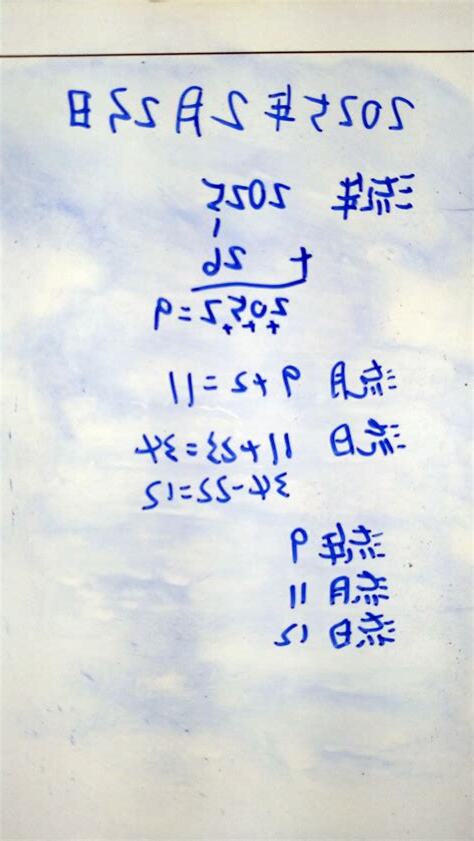 2025年2月23日
流年 2025
1
+ 26
2+0+5+2=9
流月 9+2=11
流日 11+23=34
34-22=12
流年 9
流月 11
流日 12